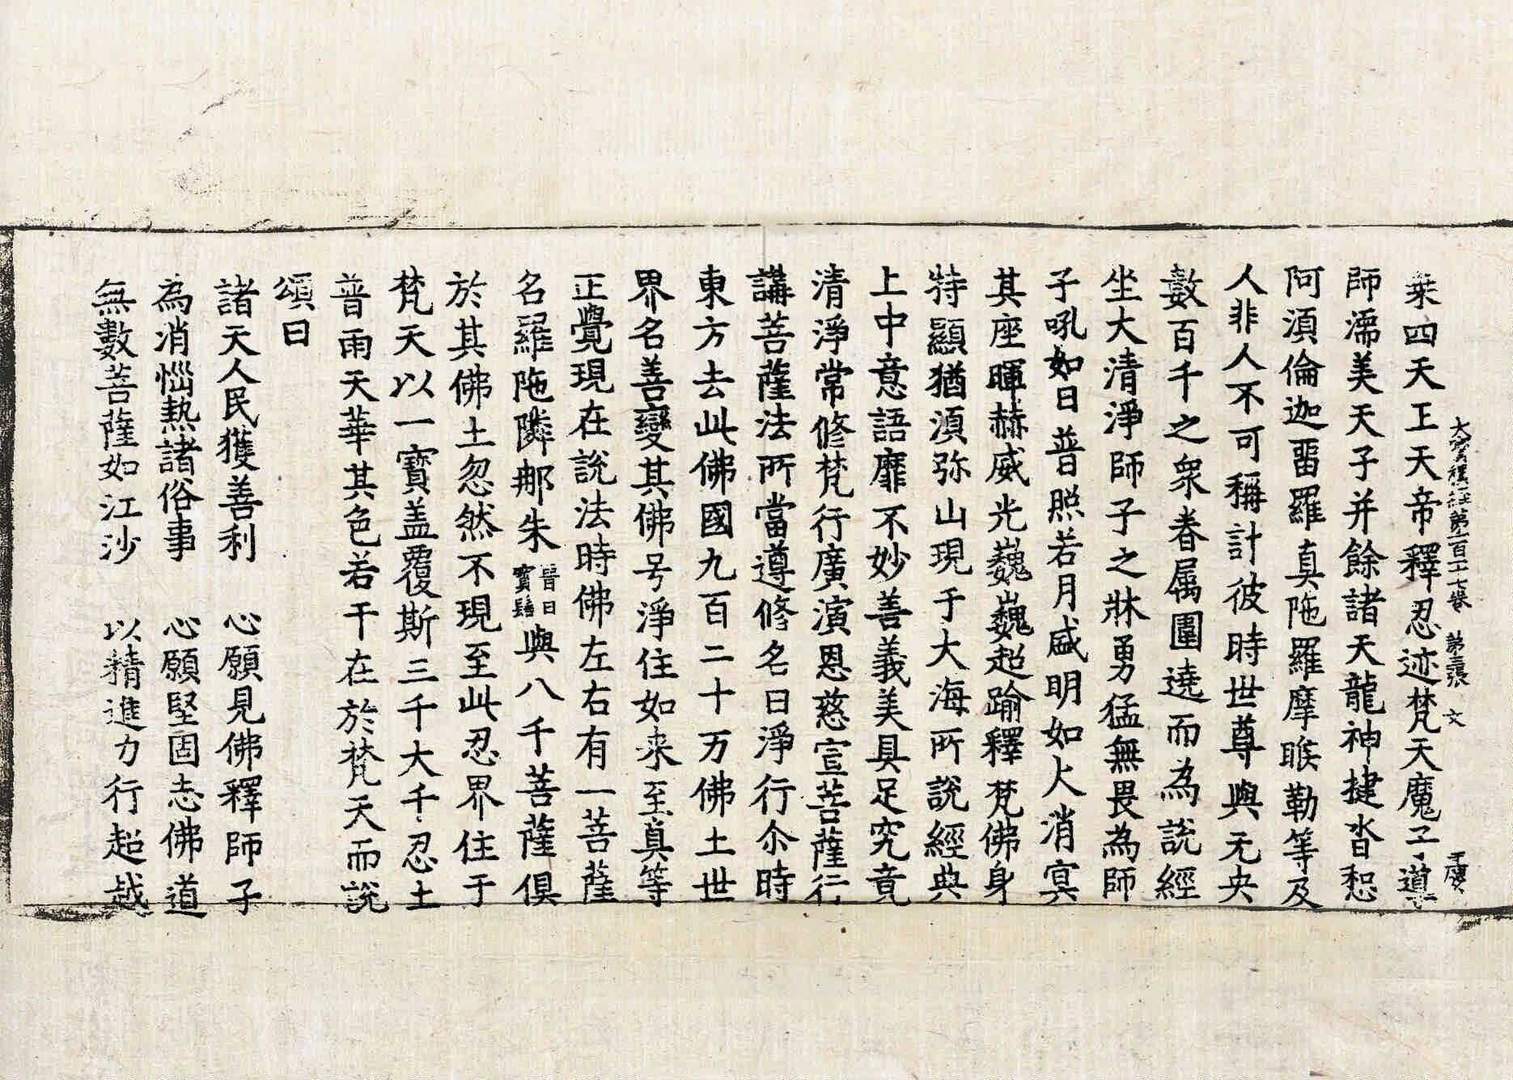 大寶積經第一百一十七卷 第三張 文
乘四天王天帝釋忍迹梵天魔子導
師濡美天子并餘諸天龍神揵沓惒
阿須倫迦畱羅真陁羅摩睺勒等及
人非人不可稱計彼時世尊與无央
數百千之衆眷属圍遶而為說經
坐大清淨師子之牀勇猛無畏為師
子吼如日普照若月盛明如火消㝠
其座暉赫威光巍巍超踰釋梵佛身
特顯猶須弥山現于大海所說經典
上中意語靡不妙善義美具足究竟
清淨常修梵行廣演恩慈宣菩薩行
講菩薩法所當遵修名曰淨行尒時
東方去此佛國九百二十万佛土世
界名善變其佛号淨住如来至真等
正覺現在說法時佛左右有一菩薩
名羅陁隣那朱晉曰寶髻與八千菩薩俱
於其佛土忽然不現至此忍界住于
梵天以一寶盖覆斯三千大千忍土
普雨天華其色若干在於梵天而說
頌曰
諸天人民獲善利 心願見佛釋師子
為消惱熱諸俗事 心願堅固志佛道
無數菩薩如江沙 以精進力行超越